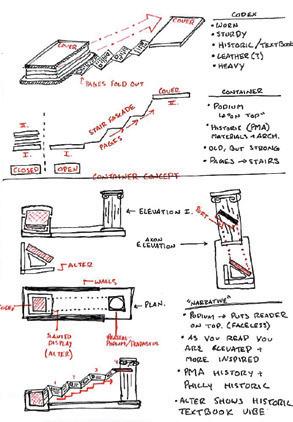 CODEX
COVER
• WORN
• STURDY
• HISTORIC/TEXTBOOK
• LEATHER(?)
• HEAVY
COVER
PAGES FOLD OUT
COVER
II.
STAIR CASCADE
PAGES
II.
I.
I.
CLOSED
OPEN
CONTAINER
• PODIUM
"ON TOP"
• HISTORIC (PMA)
MATERIALS + ARCH.
• OLD, BUT STRONG
• PAGES → STAIRS
CONTAINER CONCEPT
ELEVATION I.
AXON
ELEVATION
ALTER
WALLS
PLAN.
SLANTED
DISPLAY
(ALTER)
"NARRATIVE"
• PODIUM → PUTS READER
ON TOP. (FACELESS)
• AS YOU READ YOU
ARE ELEVATED +
MORE INSPIRED
• PMA HISTORY +
PHILLY HISTORIC
• ALTER SHOWS HISTORIC
TEXTBOOK VIBE